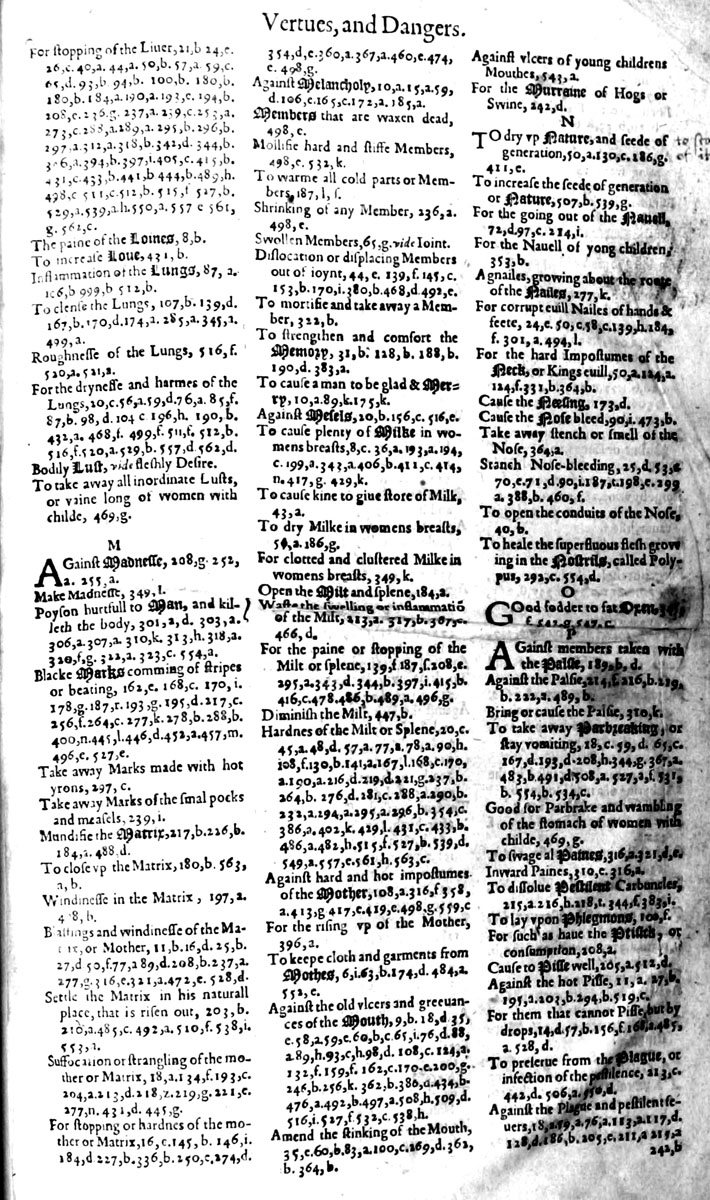 Vertues, and Dangers.
For stopping of the Liuer, 21,b 24,e.
26,c. 40,a. 44,a. 50,b. 57,a. 59,c.
65,d. 93,b 94,b. 100,b. 180,b.
180,b. 184,a. 190,a. 193,c. 194,b.
208,e. 236.g. 237,a. 239,c. 253,a.
273,c. 288,a. 289,a. 295,b. 296,b.
297,a. 312,a. 318,b. 342,d. 344,b.
376,a. 394,b. 397,i. 405,c. 415,b.
431,c. 433,b. 441,b 444,b. 489,h.
498,c 511,c. 512,b. 515,f 527,b.
529,a. 539,a.h. 550,a. 557 e 561,
g. 562,c.
The paine of the Loines, 8,b.
To increase Loue, 431, b.
Inflammation of the Lungs, 87, a.
b 999,b 512,b.
To clense the Lungs, 107,b. 139,d.
167,b. 170,d. 174,a. 285,a. 345,a.
499,a.
Roughnesse of the Lungs, 516,f.
520,a. 521,a.
For the drynesse and harmes of the
Lungs, 20,c. 56,a. 59,d. 76,a. 85,f.
87,b. 98, d. 104 c 196,h. 190,b.
432,a. 468,f. 499,f. 511,f. 512,b.
516,f. 520,a. 529,b. 557,d 562,d.
Bodily Lust, vide fleshly Desire.
To take away all inordinate Lusts,
or vaine long of women with
childe, 469,g.
M
AGainst Madnesse, 208,g. 252,
a. 255,a.
Make Madnesse, 349,l.
Poyson hurtfull to Man, and kil-
leth the body, 301,a, d. 303,a.
306,a. 307,a. 310,k. 313,h. 318,a.
320,f,g. 322,a. 323,c. 554,a.
Blacke Marks comming of stripes
or beating, 162,e. 168,c. 170,i.
178,g. 187,r. 193,g. 195,d. 217,c.
256,f. 264,c. 277,k. 278,b. 288,b.
400,n. 445,l. 446,d. 452,a. 457,m.
496,e. 527,e.
Take away Marks made with hot
yrons, 297, c.
Take away Marks of the smal pocks
and measels, 239, i.
Mundifie the Matrix, 217,b. 226,b.
184,a. 488,d.
To close vp the Matrix, 180,b. 563,
a,b.
Windinesse in the Matrix, 197, a.
b.
and windinesse of the Ma-
trix, or Mother, 11,b. 16,d. 25,b.
27,d 50,f. 77,a 89,d. 208,b. 237,a.
277,g. 316,e. 321,a. 472,e. 528,d.
Settle the Matrix in his naturall
place, that is risen out, 203, b.
210,a. 485,c. 492,a. 510,f. 538,i.
553,a.
Suffocation or strangling of the mo-
ther or Matrix, 18,a. 134,f. 193,c.
204,a. 213,d. 218,z. 219,g. 221,e.
277,n. 431,d. 445,g.
For stopping or hardnes of the mo-
ther or Matrix, 16,e. 145,b. 146,i.
184,d 227,b. 336,b. 250,c. 274,d.
354,d,e. 360,a. 367,a. 460,e. 474,
c. 498,g.
Against Melancholy, 10,a. 15,a. 59,
d. 106,e. 165,c. 172,a. 185,a.
Members that are waxen dead,
498,e.
Mollifie hard and stiffe Members,
498,e. 532,k.
To warme all cold parts or Mem-
bers, 187,l, s.
Shrinking of any Member, 236,a.
498,e.
Swollen Members, 65,g. vide Ioint.
Dislocation or displacing Members
out of ioynt, 44, e. 139,f. 145,c.
153,b. 170,i. 380,b. 468,d. 492,e.
To mortifie and take away a Mem-
ber, 322,b.
To strengthen and comfort the
Memory, 31,b. 128,b. 188,b.
190,d. 383,a.
To cause a man to be glad & Mer-
ry, 10,a. 89,k. 175,k.
Against Mesels, 20,b. 156,c. 516,e.
To cause plenty of Milke in wo-
mens breasts, 8,c. 36,a. 193,a. 194,
c. 199,a. 343,a. 406,b. 411,c. 414,
n. 417,g. 429,k.
To cause kine to giue store of Milk,
43,a.
To dry Milke in womens breasts,
54,a. 186,g.
For clotted and clustered Milke in
womens breasts, 349,k.
Open the Milt and splene, 184,a.
Waste the swelling or inflammatiō
of the Milt, 213,a. 317,b. 367,c.
466,d.
For the paine or stopping of the
Milt or splene, 139,f. 187,f. 208,e.
295,a. 343,d. 344,b. 397,i. 415,b.
416,c. 478. 486,b. 489,a. 496,g.
Diminish the Milt, 447,b.
Hardnes of the Milt or Splene, 20,c.
45,a. 48,d. 57,a. 77,a. 78,a. 90,h.
108,f. 130,b. 141,a. 167,l. 168,c. 170,
a. 190,a. 216,d. 219,d. 221,g. 237,b.
264,b. 276,d. 281,c. 288,a. 290,b.
232,a. 294,a. 295,a. 296,b. 354,c.
386,a. 402,k. 429,l. 431,c. 433,b.
486,a. 482,h. 515,f. 527,b. 539,d.
549,a. 557,c. 561,h. 563,c.
Against hard and hot impostumes
of the Mother, 108,a. 316,f 358,
a. 413,g 417,c. 419,e. 498,g. 559,c
For the rising vp of the Mother,
396,a.
To keepe cloth and garments from
Mothes, 6,i. 63,b. 174,d. 484,a.
552,c.
Against the old vlcers and greeuan-
ces of the Mouth, 9,b. 18,d. 35,
c. 58,a. 59,e. 60,b. c 65,i. 76,d. 88,
a. 89,h. 93,c,h. 98,d. 108,c. 124,a.
132,f. 159,f. 162,c. 170,c. 200,g.
246,b. 256,k. 362,b. 386,a. 434,b.
476,a. 492,b. 497,a. 508,h. 509,d.
516,i. 527,f. 532,c. 538,h.
Amend the stinking of the Mouth,
35,e. 60,b. 83,a. 100,c. 269,d. 362,
b. 364,b.
Against vlcers of young childrens
Mouthes, 543,a.
For the Murraine of Hogs or
Swine, 242,d.
N
TO dry vp Nature, and seede of
generation, 50,a. 130,c. 186,g.
411,e.
To increase the seede of generation
or Nature, 507,b. 539,g.
For the going out of the Nauell,
72,d. 97,c. 214,i.
For the Nauell of yong children,
353,b.
Agnailes, growing about the roots
of the Nailes, 277,k.
For corrupt euill Nailes of hands &
feete, 24,e. 50,c. 58,c. 139,h. 184,
f. 301,a. 494,l.
For the hard Impostumes of the
Neck, or Kings euill, 50,a. 124,a.
124,f. 331,b. 364,b.
Cause the Neesing, 173,d.
Cause the Nose bleed, 90,i. 473,b.
Take away stench or smell of the
Nose, 364,a.
Stanch Nose-bleeding, 25,d. 53,e
70,e. 71,d. 90,i. 187,t. 198,e. 299
a. 388,b. 460,f.
To open the conduits of the Nose,
40,b.
To heale the superfluous flesh grow
ing in the Nostrils, called Poly-
pus, 292,c. 554,d.
O
GOod fodder to fat Oxen,
f. 542,g. 547,c.
P
AGainst members taken with
the Palsie, 189,b, d.
Against the Palsie, 214,f. 216,b. 219,
b. 222,a. 489,b.
Bring or cause the Palsie, 310,k.
To take away Parbreaking, or
stay vomiting, 18,c. 59,d. 65,c.
167,d. 193,d. 208,h. 344,g. 367,a.
483,b. 491,d. 508,a. 527,a,f. 531,
b. 554,b. 534,c.
Good for Parbrake and wambling
of the stomach of women with
childe, 469,g.
To swage al Paines, 316,a. 321,d,e.
Inward Paines, 310,c. 316,a.
To dissolue Pestilent Carbuncles,
215,a. 216,h. 218,t. 344,f. 383,i.
To lay vpon Phlegmons, 100,f.
For such as haue the Ptisick, or
consumption, 208,a.
Cause to Pisse well, 205,a. 512,d.
Against the hot Pisse, 11,a. 27,b.
195,a. 203,b. 294,b. 519,c.
For them that cannot Pisse, but by
drops, 14,d. 57,b. 156,f. 168,a. 485,
a. 528, d.
To preserue from the Plague, or
infection of the pestilence, 213,c.
442,d. 506,a. 550,d.
Against the Plague and pestilent fe-
uers, 18,a. 59,a. 76,a. 113,a. 117,d.
128,d. 186,b. 205,e. 211,a 215,a
242,b